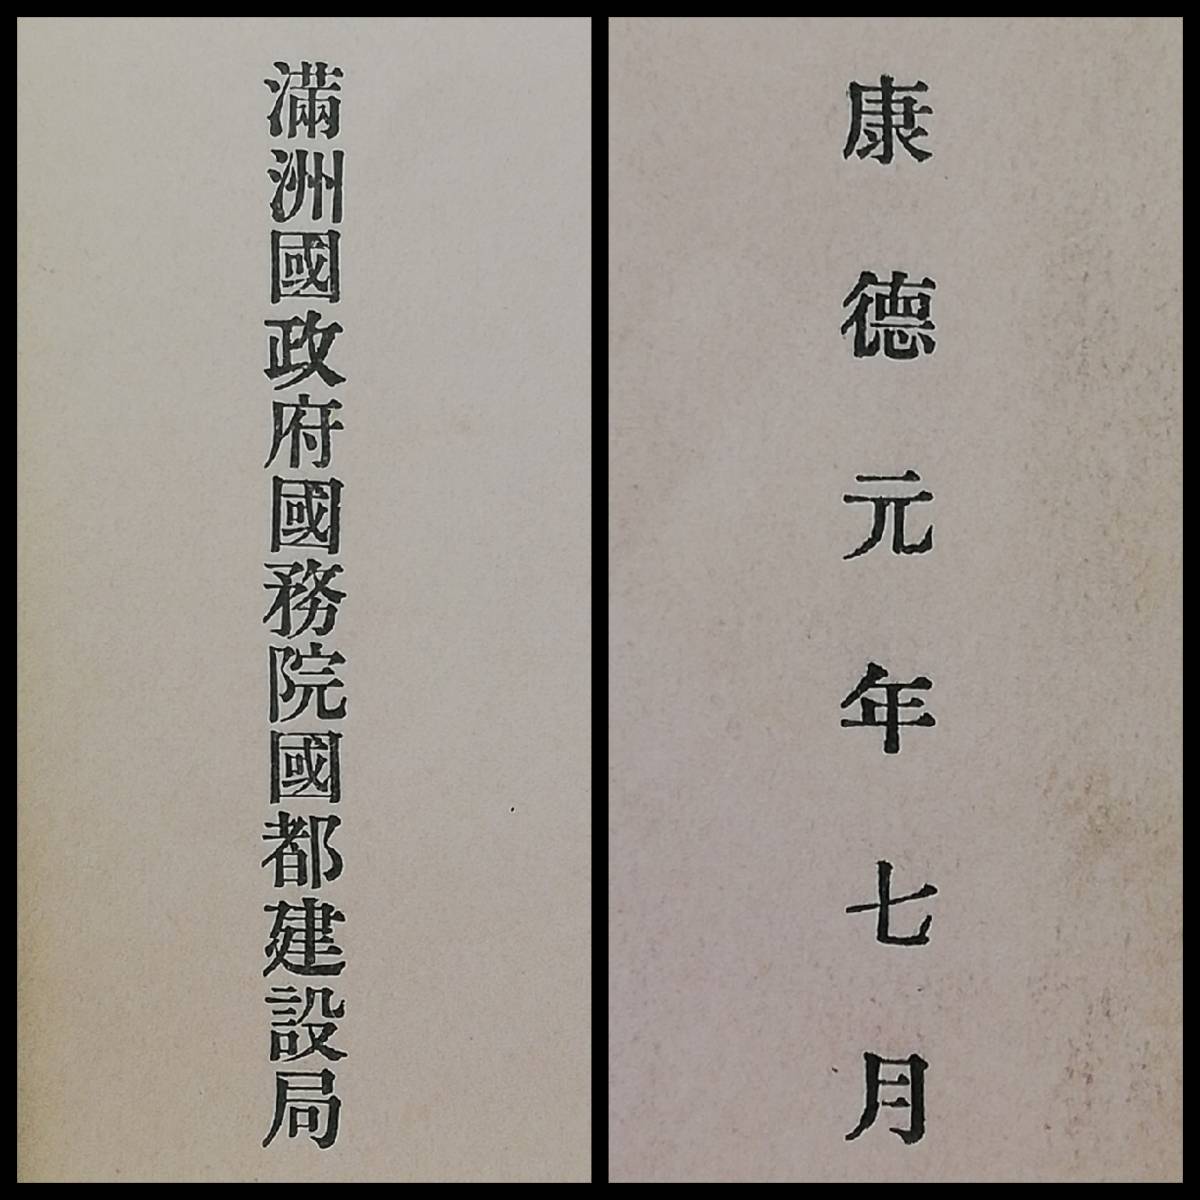 滿洲國政府國務院國都建設局
康德元年七月